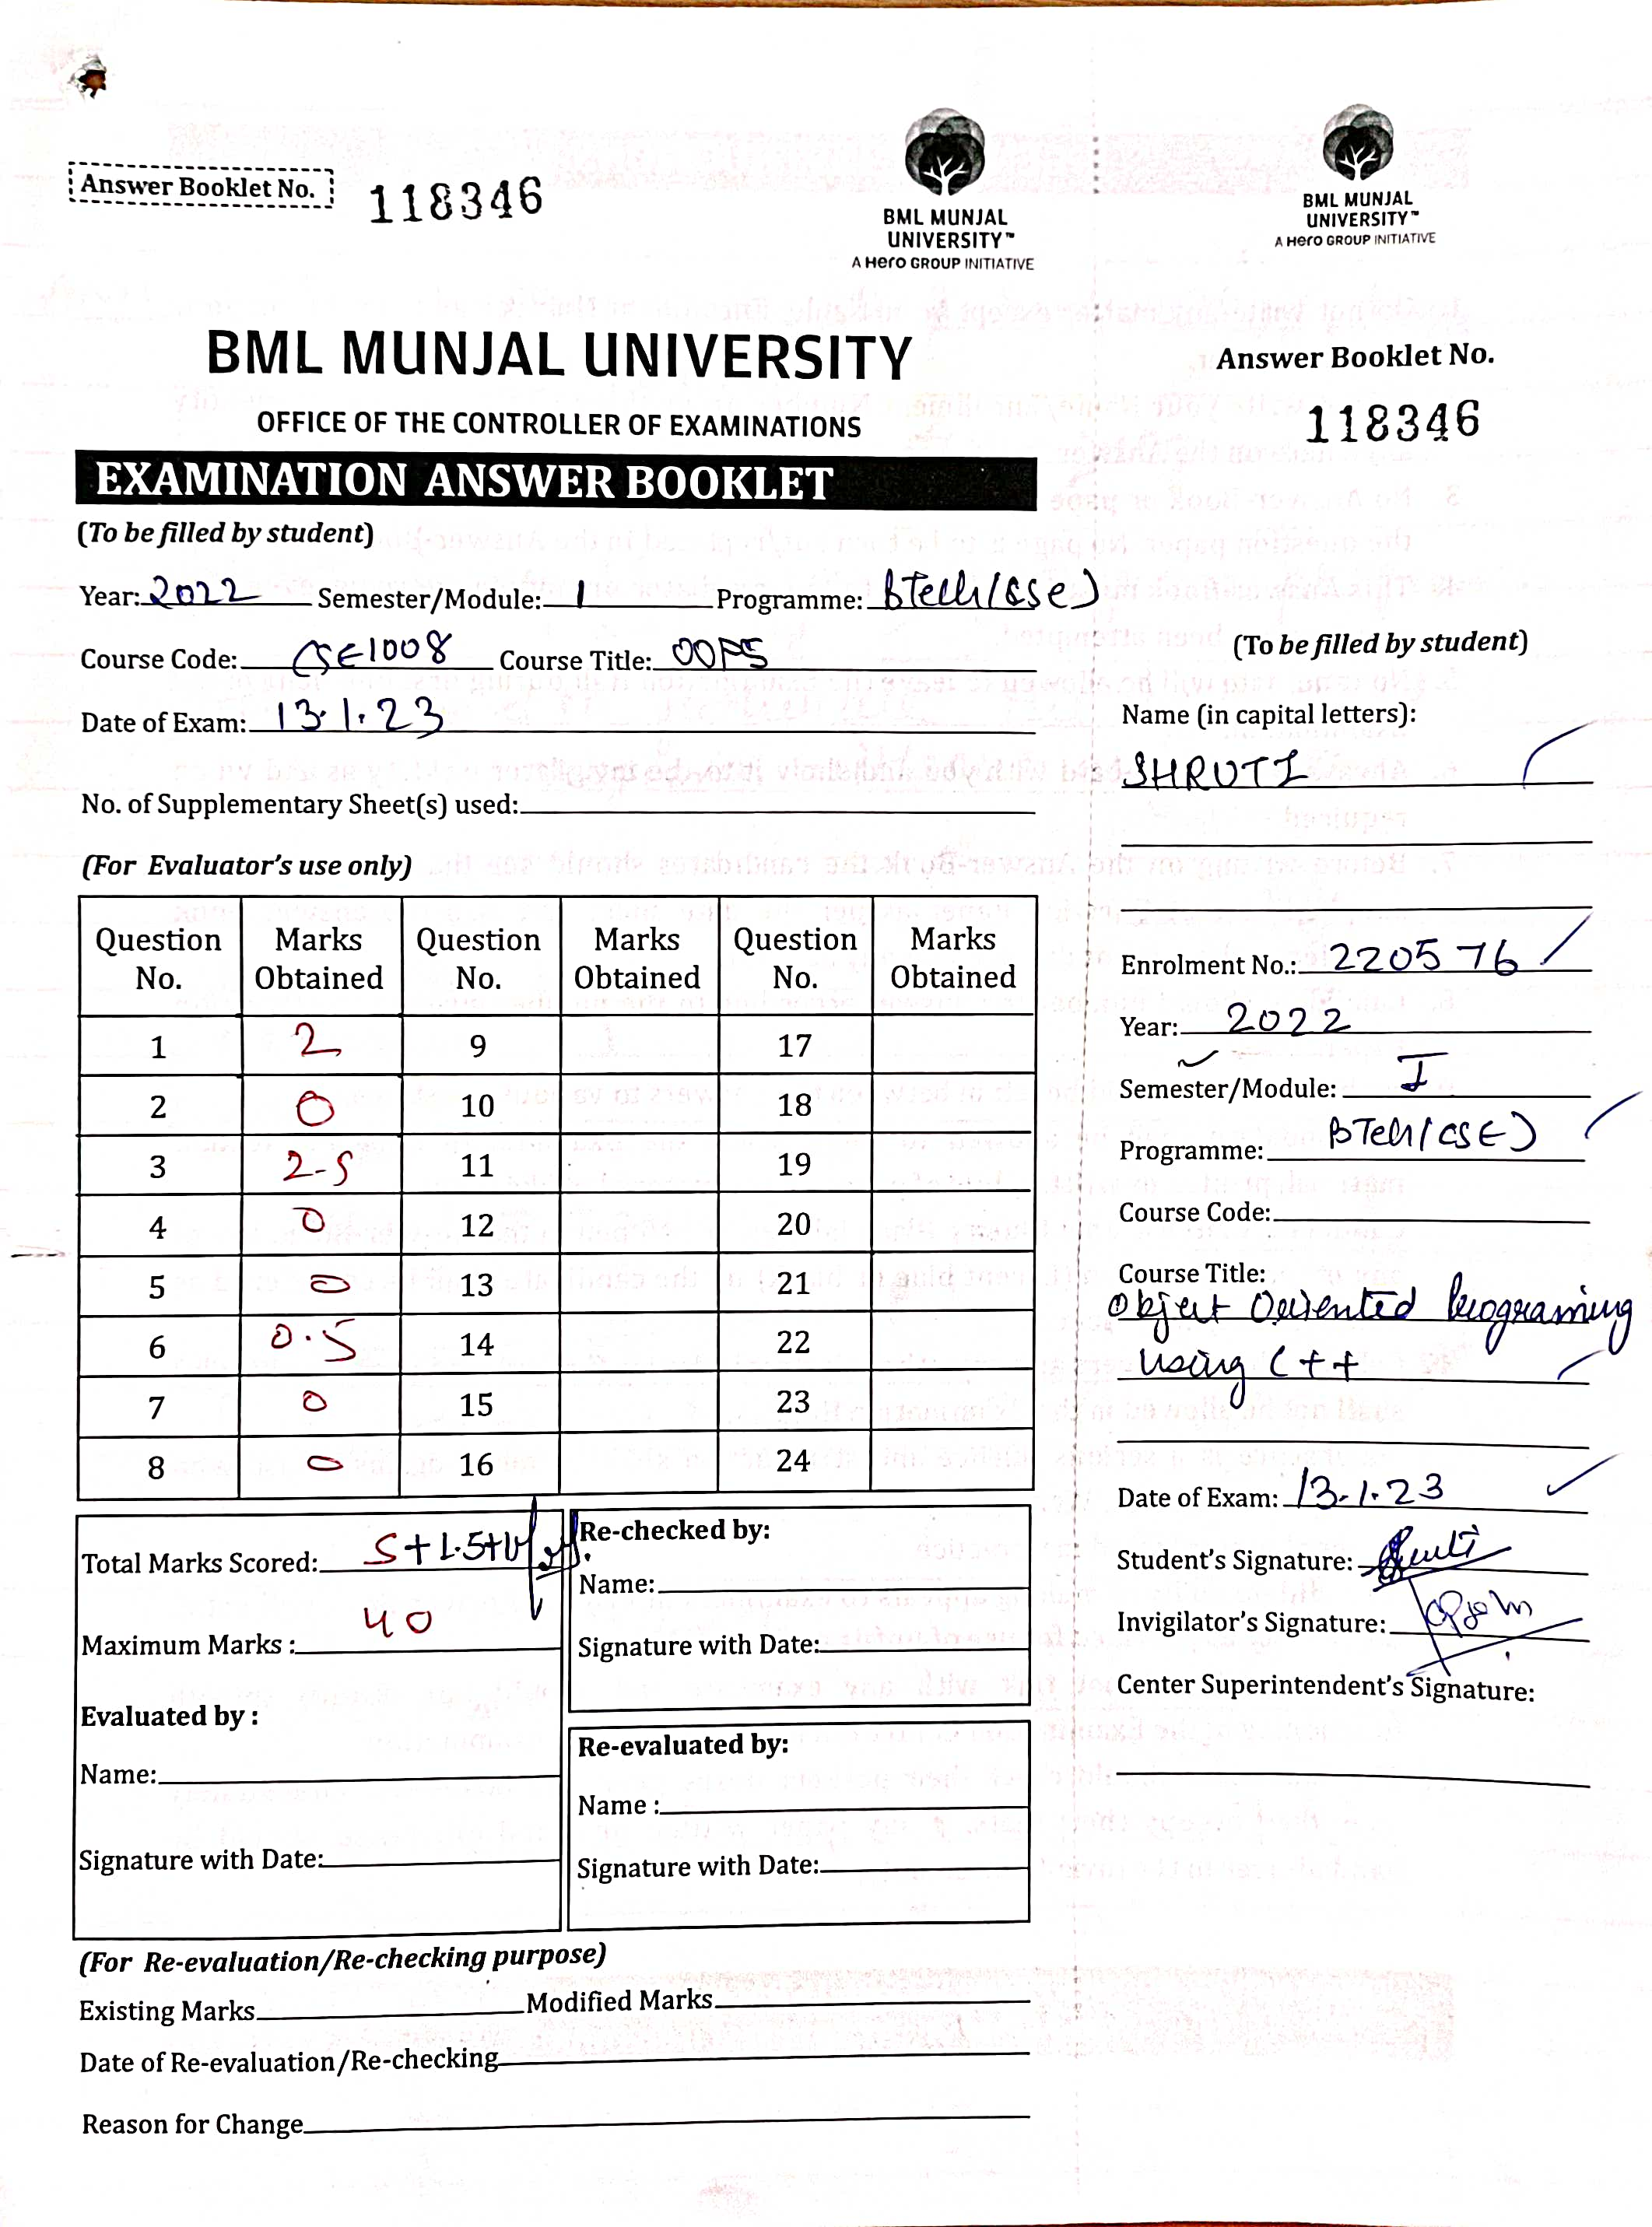 Answer Booklet No. 118346
BML MUNJAL
UNIVERSITY™
A Hero GROUP INITIATIVE
BML MUNJAL UNIVERSITY
OFFICE OF THE CONTROLLER OF EXAMINATIONS
EXAMINATION ANSWER BOOKLET
(To be filled by student)
Year: 2022 Semester/Module: 1 Programme: BTech(CSE)
Course Code: CSE1008 Course Title: OOPS
Date of Exam: 13.1.23
No. of Supplementary Sheet(s) used:
(For Evaluator's use only)
Question No. Marks Obtained Question No. Marks Obtained Question No. Marks Obtained
1 2 9 17
2 0 10 18
3 2-5 11 19
4 0 12 20
5 0 13 21
6 0.5 14 22
7 0 15 23
8 0 16 24
Total Marks Scored: 5+1.5+
Maximum Marks : 40
Evaluated by :
Name:
Signature with Date:
Re-checked by:
Name:
Signature with Date:
Re-evaluated by:
Name :
Signature with Date:
(For Re-evaluation/Re-checking purpose)
Existing Marks Modified Marks
Date of Re-evaluation/Re-checking
Reason for Change
BML MUNJAL
UNIVERSITY™
A Hero GROUP INITIATIVE
Answer Booklet No.
118346
(To be filled by student)
Name (in capital letters):
SHRUTI
Enrolment No.: 220576
Year: 2022
Semester/Module: I
Programme: BTech(CSE)
Course Code:
Course Title:
Object Oriented Programing
using C++
Date of Exam: 13.1.23
Student's Signature: Shruti
Invigilator's Signature:
Center Superintendent's Signature: